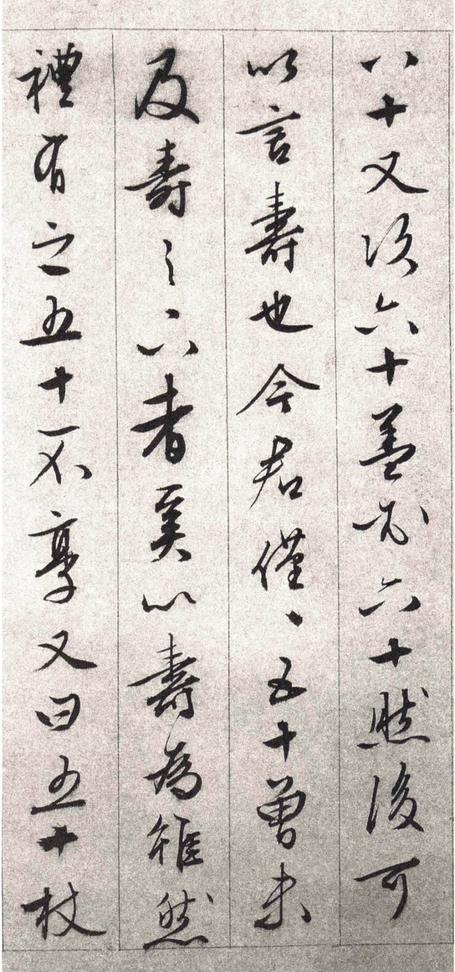 八十又次六十蓋六十然後可
以言壽也今君僅〻五十曾未
及壽之下者奚以壽為雖然
禮有之五十不享又曰五十杖